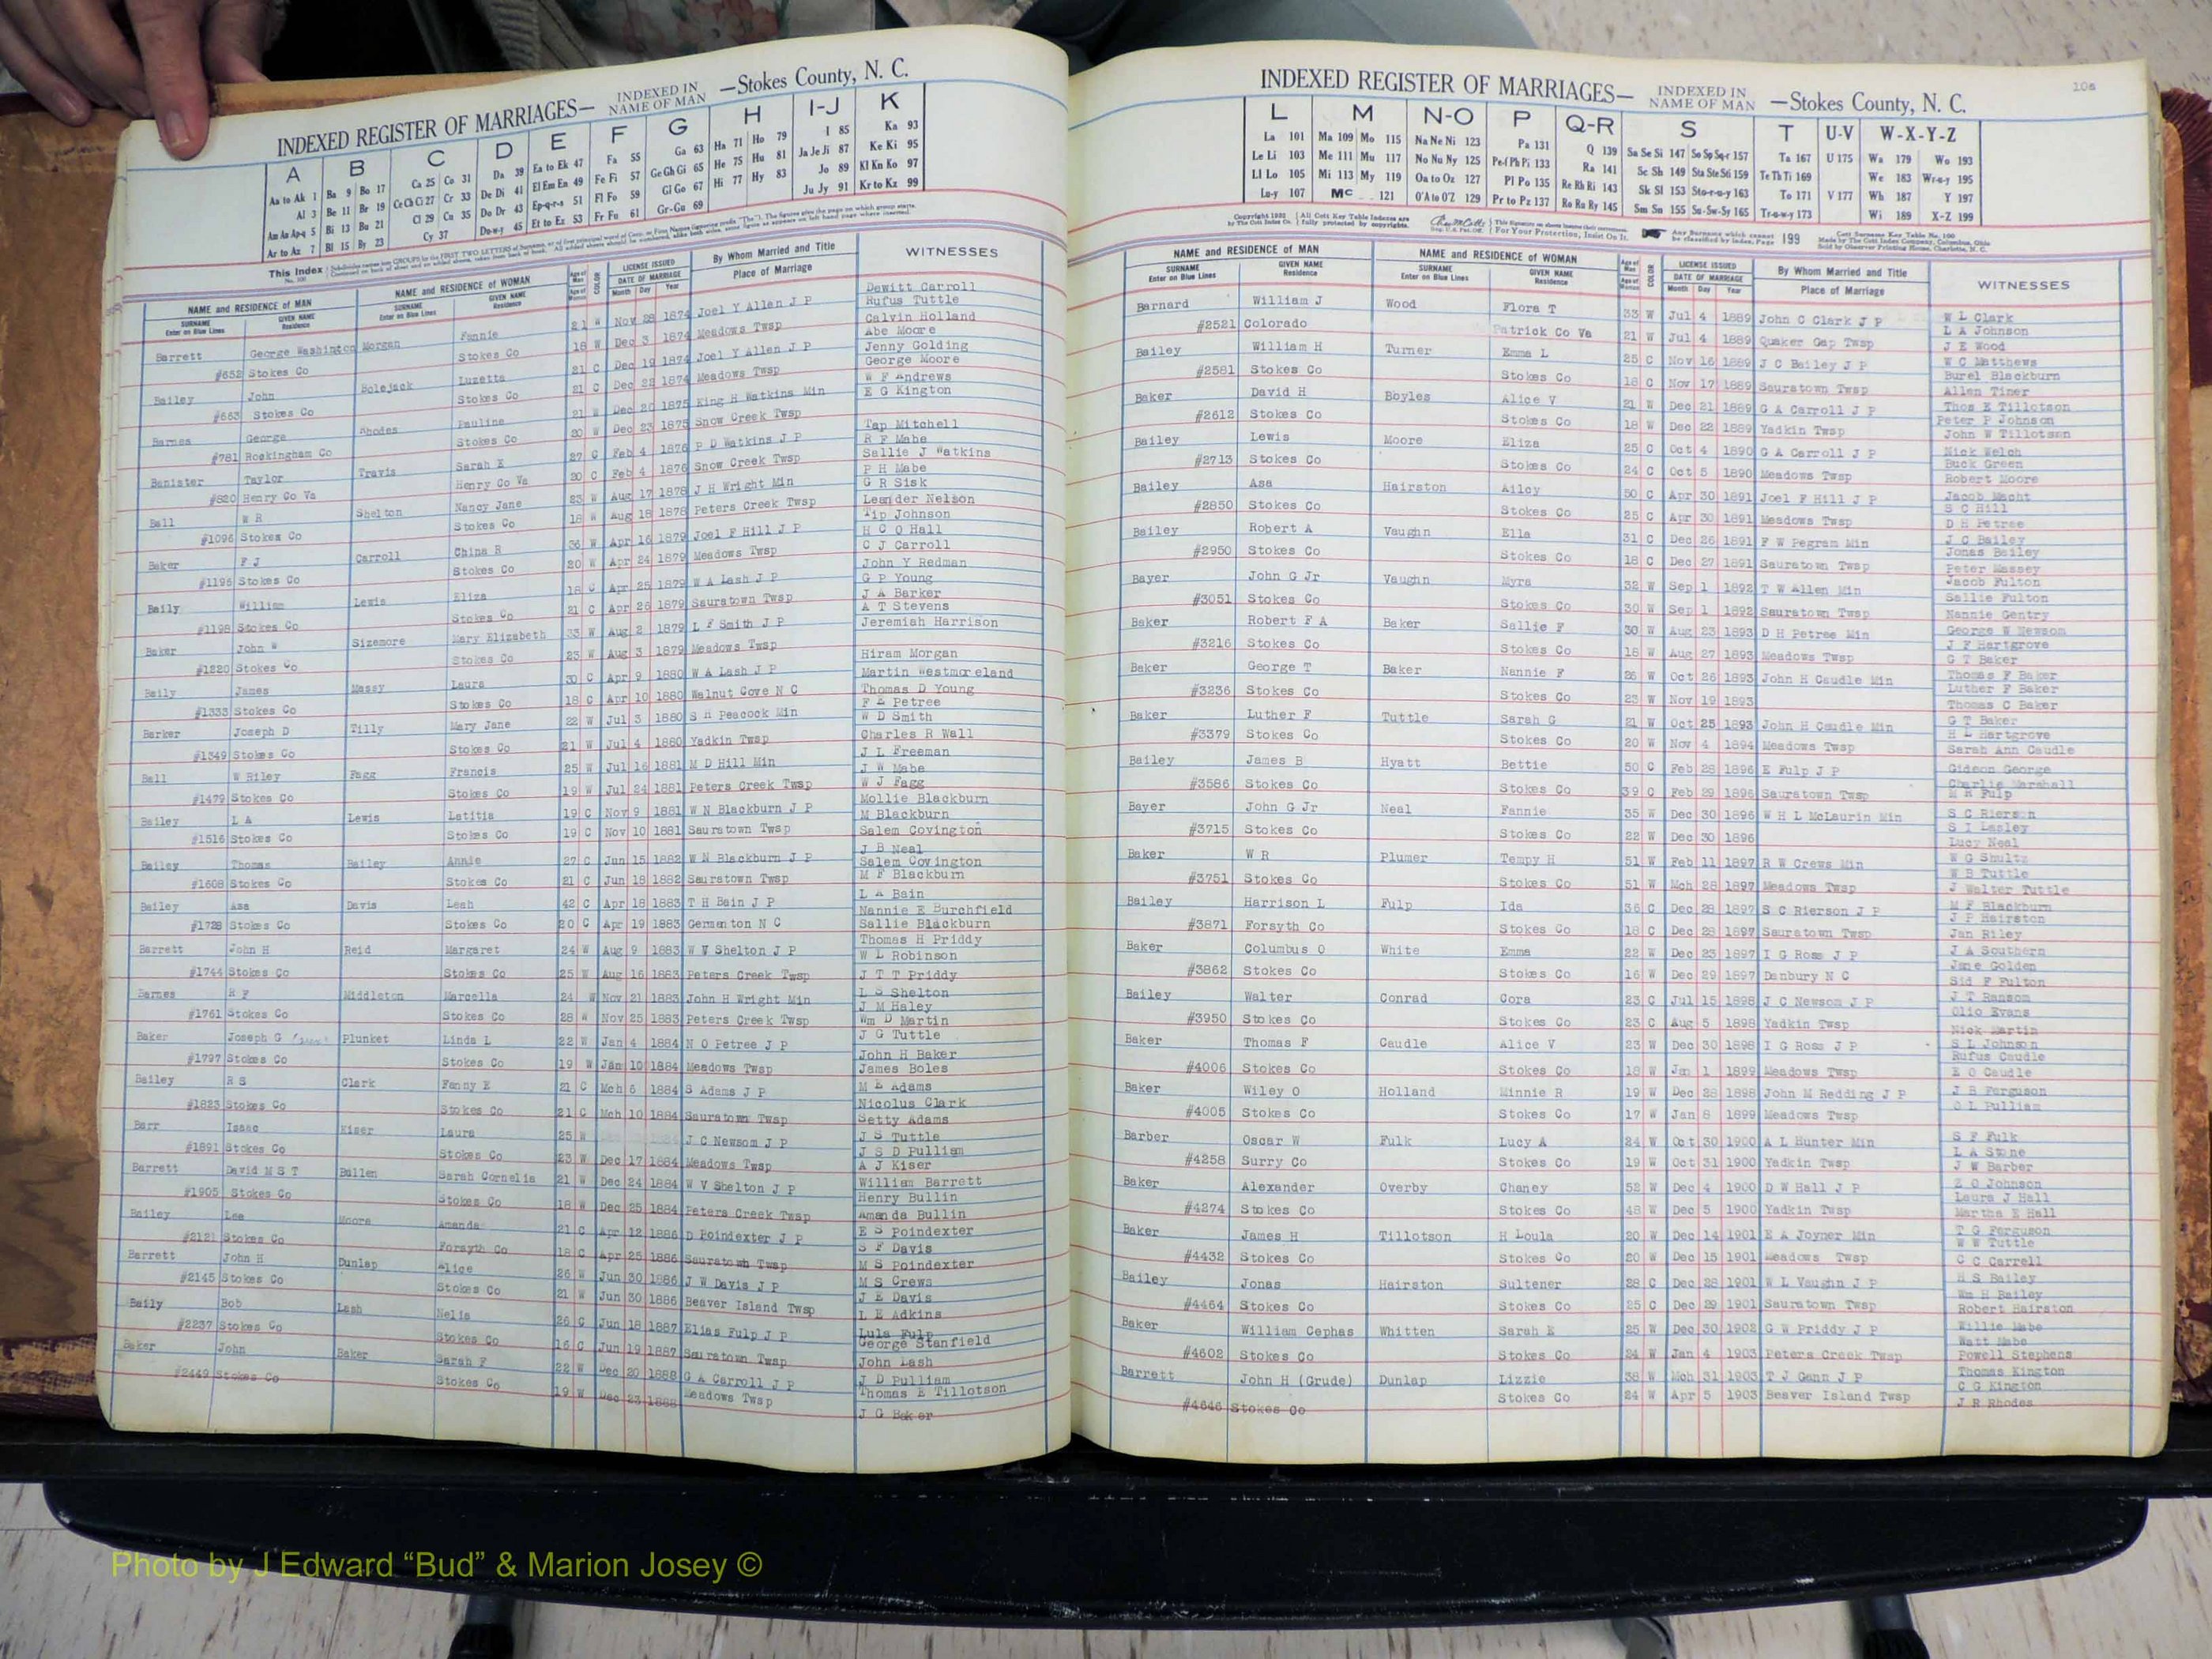 INDEXED REGISTER OF MARRIAGES— INDEXED IN NAME OF MAN —Stokes County, N. C.
A B C D E F G H I-J K
Aa to Ak 1 Ba 9 Bo 17 Ca 25 Co 31 Da 39 Ea to Ek 47 Fa 55 Ga 63 Ha 71 Ho 79 I 85 Ka 93
Al 3 Be 11 Br 19 Ce Ch Ci 27 Cr 33 De Di 41 El Em En 49 Fe Fi 57 Ge Gh Gi 65 He 75 Hu 81 Ja Je Ji 87 Ke Ki 95
Am An Ap-q 5 Bi 13 Bu 21 Cl 29 Cu 35 Do Dr 43 Ep-q-r-s 51 Fl Fo 59 Gl Go 67 Hi 77 Hy 83 Jo 89 Kl Kn Ko 97
Ar to Az 7 Bl 15 By 23 Cy 37 Do-w-y 45 Et to Ez 53 Fr Fu 61 Gr-Gu 69 Ju Jy 91 Kr to Kz 99
NAME and RESIDENCE of MAN NAME and RESIDENCE of WOMAN LICENSE ISSUED By Whom Married and Title WITNESSES
SURNAME Enter on Blue Lines GIVEN NAME Residence SURNAME Enter on Blue Lines GIVEN NAME Residence COLOR DATE OF MARRIAGE Month Day Year Place of Marriage
Dewitt Carroll
Barrett George Washington Morgan Fannie 21 W Nov 28 1874 Joel Y Allen J P Rufus Tuttle
Calvin Holland
#652 Stokes Co Stokes Co 18 W Dec 3 1874 Meadows Twsp Abe Moore
Bailey John Bolejack Luzetta 21 C Dec 19 1874 Joel Y Allen J P Jenny Golding
George Moore
#663 Stokes Co Stokes Co 21 C Dec 22 1874 Meadows Twsp W F Andrews
Barnes George Rhodes Pauline 21 W Dec 20 1875 King H Watkins Min E G Kington
#781 Rockingham Co Stokes Co 20 W Dec 23 1875 Snow Creek Twsp Tap Mitchell
Banister Taylor Travis Sarah E 27 C Feb 4 1876 P D Watkins J P R F Mabe
Sallie J Watkins
#820 Henry Co Va Henry Co Va 20 C Feb 4 1876 Snow Creek Twsp P H Mabe
Ball W R Shelton Nancy Jane 23 W Aug 17 1878 J H Wright Min G R Sisk
Leander Nelson
#1096 Stokes Co Stokes Co 18 W Aug 18 1878 Peters Creek Twsp Tip Johnson
Baker F J Carroll China R 36 W Apr 16 1879 Joel F Hill J P H C O Hall
C J Carroll
#1195 Stokes Co Stokes Co 20 W Apr 24 1879 Meadows Twsp John Y Redman
Baily William Lewis Eliza 18 C Apr 25 1879 W A Lash J P G P Young
J A Barker
#1198 Stokes Co Stokes Co 21 C Apr 26 1879 Sauratown Twsp A T Stevens
Baker John W Sizemore Mary Elizabeth 33 W Aug 2 1879 L F Smith J P Jeremiah Harrison
#1220 Stokes Co Stokes Co 23 W Aug 3 1879 Meadows Twsp Hiram Morgan
Baily James Massy Laura 30 C Apr 9 1880 W A Lash J P Martin Westmoreland
Thomas D Young
#1333 Stokes Co Stokes Co 18 C Apr 10 1880 Walnut Cove N C F E Petree
Barker Joseph D Tilly Mary Jane 22 W Jul 3 1880 S H Peacock Min W D Smith
Charles R Wall
#1349 Stokes Co Stokes Co 21 W Jul 4 1880 Yadkin Twsp J L Freeman
Ball W Riley Fagg Francis 25 W Jul 16 1881 M D Hill Min J W Mabe
W J Fagg
#1479 Stokes Co Stokes Co 19 W Jul 24 1881 Peters Creek Twsp Mollie Blackburn
Bailey L A Lewis Latitia 19 C Nov 9 1881 W N Blackburn J P M Blackburn
#1516 Stokes Co Stokes Co 19 C Nov 10 1881 Sauratown Twsp Salem Covington
J B Neal
Bailey Thomas Bailey Annie 27 C Jun 15 1882 W N Blackburn J P Salem Covington
#1608 Stokes Co Stokes Co 21 C Jun 18 1882 Sauratown Twsp M F Blackburn
Bailey Asa Davis Leah 42 C Apr 18 1883 T H Bain J P L A Bain
Nannie E Burchfield
#1728 Stokes Co Stokes Co 20 C Apr 19 1883 Germanton N C Sallie Blackburn
Barrett John H Reid Margaret 24 W Aug 9 1883 W V Shelton J P Thomas H Priddy
W L Robinson
#1744 Stokes Co Stokes Co 25 W Aug 16 1883 Peters Creek Twsp J T T Priddy
Barnes R F Middleton Marcella 24 W Nov 21 1883 John H Wright Min L S Shelton
J M Haley
#1761 Stokes Co Stokes Co 28 W Nov 25 1883 Peters Creek Twsp Wm D Martin
Baker Joseph G Plunket Linda L 22 W Jan 4 1884 N O Petree J P J G Tuttle
John H Baker
#1797 Stokes Co Stokes Co 19 W Jan 10 1884 Meadows Twsp James Boles
Bailey R S Clark Fanny E 21 C Mch 6 1884 S Adams J P M E Adams
Nicolus Clark
#1823 Stokes Co Stokes Co 21 C Mch 10 1884 Sauratown Twsp Setty Adams
Barr Isaac Kiser Laura 25 W J C Newsom J P J S Tuttle
J S D Pulliam
#1891 Stokes Co Stokes Co 23 W Dec 17 1884 Meadows Twsp A J Kiser
Barrett David M S T Bullen Sarah Cornelia 21 W Dec 24 1884 W V Shelton J P William Barrett
Henry Bullin
#1905 Stokes Co Stokes Co 18 W Dec 25 1884 Peters Creek Twsp Amanda Bullin
Bailey Lee Moore Amanda 21 C Apr 12 1886 D Poindexter J P E S Poindexter
S F Davis
#2121 Stokes Co Forsyth Co 18 C Apr 25 1886 Sauratown Twsp M S Poindexter
Barrett John H Dunlap Alice 26 W Jun 30 1886 J W Davis J P M S Crews
J E Davis
#2145 Stokes Co Stokes Co 21 W Jun 30 1886 Beaver Island Twsp L E Adkins
Baily Bob Lash Nelia 26 C Jun 18 1887 Elias Fulp J P Lula Fulp
George Stanfield
#2237 Stokes Co Stokes Co 16 C Jun 19 1887 Sauratown Twsp John Lash
Baker John Baker Sarah F 22 W Dec 20 1888 G A Carroll J P J D Pulliam
Thomas E Tillotson
#2449 Stokes Co Stokes Co 19 W Dec 23 1888 Meadows Twsp J G Baker
106
INDEXED REGISTER OF MARRIAGES— INDEXED IN NAME OF MAN —Stokes County, N. C.
L M N-O P Q-R S T U-V W-X-Y-Z
La 101 Ma 109 Mo 115 Na Ne Ni 123 Pa 131 Q 139 Sa Se Si 147 So Sp Sq-r 157 Ta 167 U 175 Wa 179 Wo 193
Le Li 103 Me 111 Mu 117 No Nu Ny 125 Pe-f Ph Pi 133 Ra 141 Sc Sh 149 Sta Ste Sti 159 Te Th Ti 169 We 183 Wr-u-y 195
Ll Lo 105 Mi 113 My 119 Oa to Oz 127 Pl Po 135 Re Rh Ri 143 Sk Sl 153 Sto-r-u-y 163 To 171 V 177 Wh 187 Y 197
Lu-y 107 Mc 121 O'A to O'Z 129 Pr to Pz 137 Ro Ru Ry 145 Sm Sn 155 Su-Sw-Sy 165 Tr-u-w-y 173 Wi 189 X-Z 199
NAME and RESIDENCE of MAN NAME and RESIDENCE of WOMAN LICENSE ISSUED By Whom Married and Title WITNESSES
SURNAME Enter on Blue Lines GIVEN NAME Residence SURNAME Enter on Blue Lines GIVEN NAME Residence COLOR DATE OF MARRIAGE Month Day Year Place of Marriage
Barnard William J Wood Flora T 33 W Jul 4 1889 John C Clark J P W L Clark
L A Johnson
#2521 Colorado Patrick Co Va 21 W Jul 4 1889 Quaker Gap Twsp J E Wood
Bailey William H Turner Emma L 25 C Nov 16 1889 J C Bailey J P W C Matthews
Burel Blackburn
#2581 Stokes Co Stokes Co 18 C Nov 17 1889 Sauratown Twsp Allen Timer
Baker David H Boyles Alice V 21 W Dec 21 1889 G A Carroll J P Thos E Tillotson
Peter P Johnson
#2612 Stokes Co Stokes Co 18 W Dec 22 1889 Yadkin Twsp John W Tillotson
Bailey Lewis Moore Eliza 25 C Oct 4 1890 G A Carroll J P Nick Welch
Buck Green
#2713 Stokes Co Stokes Co 24 C Oct 5 1890 Meadows Twsp Robert Moore
Bailey Asa Hairston Ailcy 50 C Apr 30 1891 Joel F Hill J P Jacob Macht
S C Hill
#2850 Stokes Co Stokes Co 25 C Apr 30 1891 Meadows Twsp D H Petree
Bailey Robert A Vaughn Ella 31 C Dec 26 1891 F W Pegram Min J C Bailey
Jonas Bailey
#2950 Stokes Co Stokes Co 18 C Dec 27 1891 Sauratown Twsp Peter Massey
Bayer John G Jr Vaughn Myra 32 W Sep 1 1892 T W Allen Min Jacob Fulton
Sallie Fulton
#3051 Stokes Co Stokes Co 30 W Sep 1 1892 Sauratown Twsp Nannie Gentry
Baker Robert F A Baker Sallie F 30 W Aug 23 1893 D H Petree Min George W Newsom
J F Hartgrove
#3216 Stokes Co Stokes Co 18 W Aug 27 1893 Meadows Twsp G T Baker
Baker George T Baker Nannie F 26 W Oct 26 1893 John H Caudle Min Thomas F Baker
Luther F Baker
#3236 Stokes Co Stokes Co 23 W Nov 19 1893 Thomas C Baker
Baker Luther F Tuttle Sarah G 21 W Oct 25 1893 John H Caudle Min G T Baker
H L Hartgrove
#3379 Stokes Co Stokes Co 20 W Nov 4 1894 Meadows Twsp Sarah Ann Caudle
Bailey James B Hyatt Bettie 50 C Feb 28 1896 E Fulp J P Gideon George
Charlie Marshall
#3586 Stokes Co Stokes Co 39 C Feb 29 1896 Sauratown Twsp M R Fulp
Bayer John G Jr Neal Fannie 35 W Dec 30 1896 W H L McLaurin Min S C Rierson
S I Lasley
#3715 Stokes Co Stokes Co 22 W Dec 30 1896 Lucy Neal
Baker W R Plumer Tempy H 51 W Feb 11 1897 R W Crews Min W G Shultz
W B Tuttle
#3751 Stokes Co Stokes Co 51 W Mch 28 1897 Meadows Twsp J Walter Tuttle
Bailey Harrison L Fulp Ida 36 C Dec 28 1897 S C Rierson J P M F Blackburn
J P Hairston
#3871 Forsyth Co Stokes Co 18 C Dec 29 1897 Sauratown Twsp Jan Riley
Baker Columbus O White Emma 22 W Dec 23 1897 I G Ross J P J A Southern
Jane Golden
#3862 Stokes Co Stokes Co 16 W Dec 29 1897 Danbury N C Sid F Fulton
Bailey Walter Conrad Cora 23 C Jul 15 1898 J C Newsom J P J T Ransom
Olio Evans
#3950 Stokes Co Stokes Co 23 C Aug 5 1898 Yadkin Twsp Nick Martin
Baker Thomas F Caudle Alice V 23 W Dec 30 1898 I G Ross J P S L Johnson
Rufus Caudle
#4006 Stokes Co Stokes Co 18 W Jan 1 1899 Meadows Twsp E O Caudle
Baker Wiley O Holland Minnie R 19 W Dec 28 1898 John M Redding J P J B Ferguson
O L Pulliam
#4005 Stokes Co Stokes Co 17 W Jan 8 1899 Meadows Twsp
Barber Oscar W Fulk Lucy A 24 W Oct 30 1900 A L Hunter Min S F Fulk
L A Stone
#4258 Surry Co Stokes Co 19 W Oct 31 1900 Yadkin Twsp J W Barber
Baker Alexander Overby Chaney 52 W Dec 4 1900 D W Hall J P Z O Johnson
Laura J Hall
#4274 Stokes Co Stokes Co 48 W Dec 5 1900 Yadkin Twsp Martha E Hall
Baker James H Tillotson H Loula 20 W Dec 14 1901 E A Joyner Min T G Ferguson
W W Tuttle
#4432 Stokes Co Stokes Co 20 W Dec 15 1901 Meadows Twsp C C Carrell
Bailey Jonas Hairston Sultener 28 C Dec 28 1901 W L Vaughn J P H S Bailey
Wm H Bailey
#4464 Stokes Co Stokes Co 25 C Dec 29 1901 Sauratown Twsp Robert Hairston
Baker William Cephas Whitten Sarah E 25 W Dec 30 1902 G W Priddy J P Willie Mabe
Watt Mabe
#4602 Stokes Co Stokes Co 24 W Jan 4 1903 Peters Creek Twsp Powell Stephens
Barrett John H (Grude) Dunlap Lizzie 38 W Mch 31 1903 T J Gann J P Thomas Kington
C G Kington
#4646 Stokes Co Stokes Co 24 W Apr 5 1903 Beaver Island Twsp J R Rhodes
Photo by J Edward “Bud” & Marion Josey ©